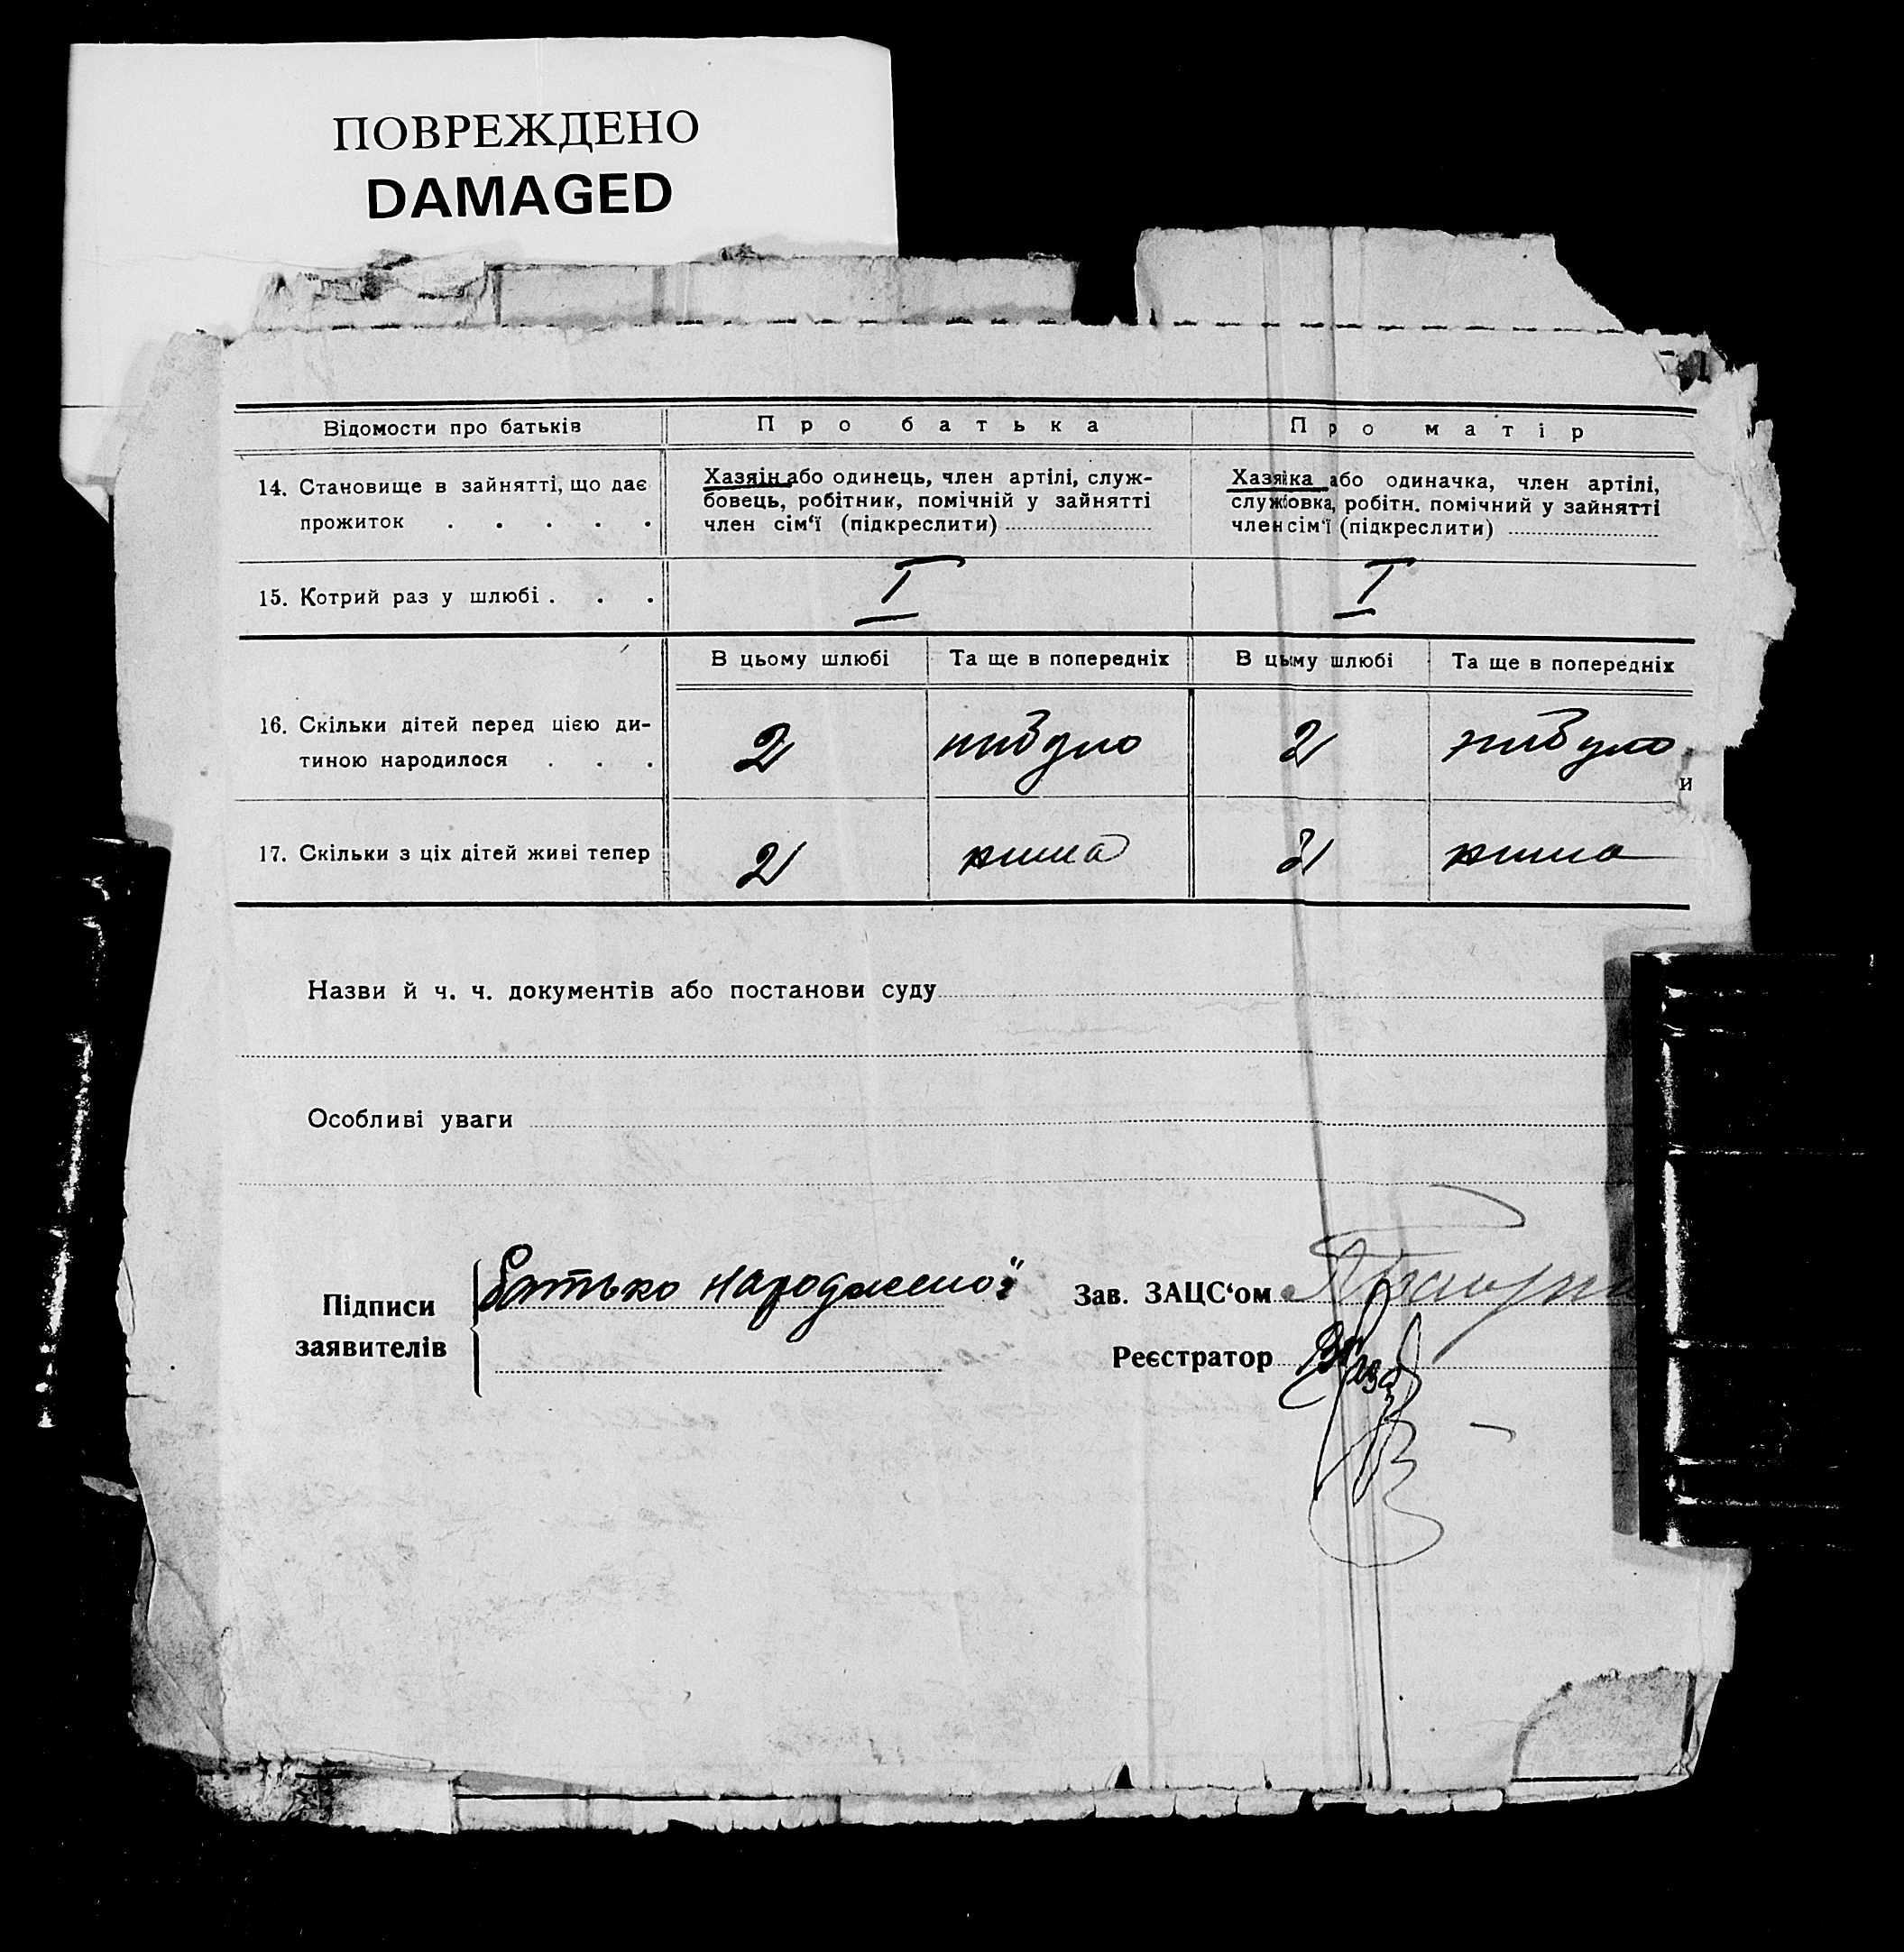 ПОВРЕЖДЕНО
DAMAGED
Відомости про батьків
Про батька
Про матір
14. Становище в зайнятті, що дає
прожиток . . . . .
Хазяїн або одинець, член артілі, служ-
бовець, робітник, помічній у зайнятті
член сім'ї (підкреслити)
Хазяїка або одиначка, член артілі,
службовка, робітн. помічний у зайнятті
член сім'ї (підкреслити)
15. Котрий раз у шлюбі . . .
I
I
В цьому шлюбі
Та ще в попередніх
В цьму шлюбі
Та ще в попередніх
16. Скільки дітей перед цією ди-
тиною народилося . . .
2
нибуло
2
нибуло
и
17. Скільки з ціх дітей живі тепер
2
нима
2
нима
Назви й ч. ч. документів або постанови суду
Особливі уваги
Підписи
заявителів
батько народженої
Зав. ЗАЦС'ом
Реєстратор